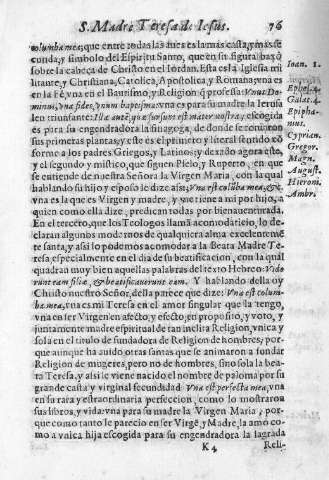 S. Madre Teresa de Iesus. 76
columba mea, que entre todas las aues es la mas casta, y mas fecunda, y simbolo del Espiritu Santo, que en su figura baxò
sobre la cabeça de Christo en el Iordan. Esta es la Iglesia militante, y Christiana, Catolica, Apostolica, y Romana; vna es
en la Fè, vna en el Bautismo, y Religion que professa: Vnus Dominus, vna fides, vnum baptisma: vna es para su madre la Ierusalen
triunfante: Illa autē, quæ sursum est mater nostra, escogida
es para su engendradora la sinagoga, de donde se tomaron
sus primeras plantas, y este es el primero y literal sentido conforme
a los padres Griegos, y Latinos; y dexado agora este,
y el segundo y mistico, que siguen Pselo, y Ruperto, en que
se entiende de nuestra Señora la Virgen Maria, con la qual
hablando su hijo y esposo le dize assi: Vna est colūba mea, &c.
vna es la que es Virgen y madre, y que tiene a mi por hijo, a
quien como ella dize, predican todas por bienauenturada.
En el tercero, que los Teologos llamã acomodaticio, lo declaran
algunos modernos de qualquiera alma excelentemēte
santa, y assi lo podemos acomodar a la Beata Madre Teresa,
especialmente en el dia de su beatificacion, con la qual
quadran muy bien aquellas palabras del texto Hebreo: Viderunt
eam filiæ, & beatificauerunt eam. Y hablando della oy
Christo nuestro Señor, della parece que dize: Vna est columba
mea, vna es mi Teresa en el amor singular que la tengo,
vna en ser Virgen en afecto, y efecto, en proposito, y voto, y
juntamente madre espiritual de tan inclita Religion, vnica y
sola en el titulo de fundadora de Religion de hombres; porque
aunque ha auido otras santas que se animaron a fundar
Religion de mugeres, pero no de hombres, sino sola la beata
Teresa, y assi le viene nacido el nombre de paloma por su
grande casta y virginal fecundidad. Vna est perfecta mea, vna
en su rara y estraordinaria perfeccion, como lo mostraron
sus libros, y vida: vna para su madre la Virgen Maria, porque
como tanto le parecio en ser Virgē, y Madre, la amò como
a vnica hija escogida para su engendradora la sagrada
K 4 Reli-
Ioan. 1.
Ephes. 4.
Galat. 4.
Epiphanius.
Cyprian.
Gregor.
Magn.
August.
Hieroni.
Ambri.